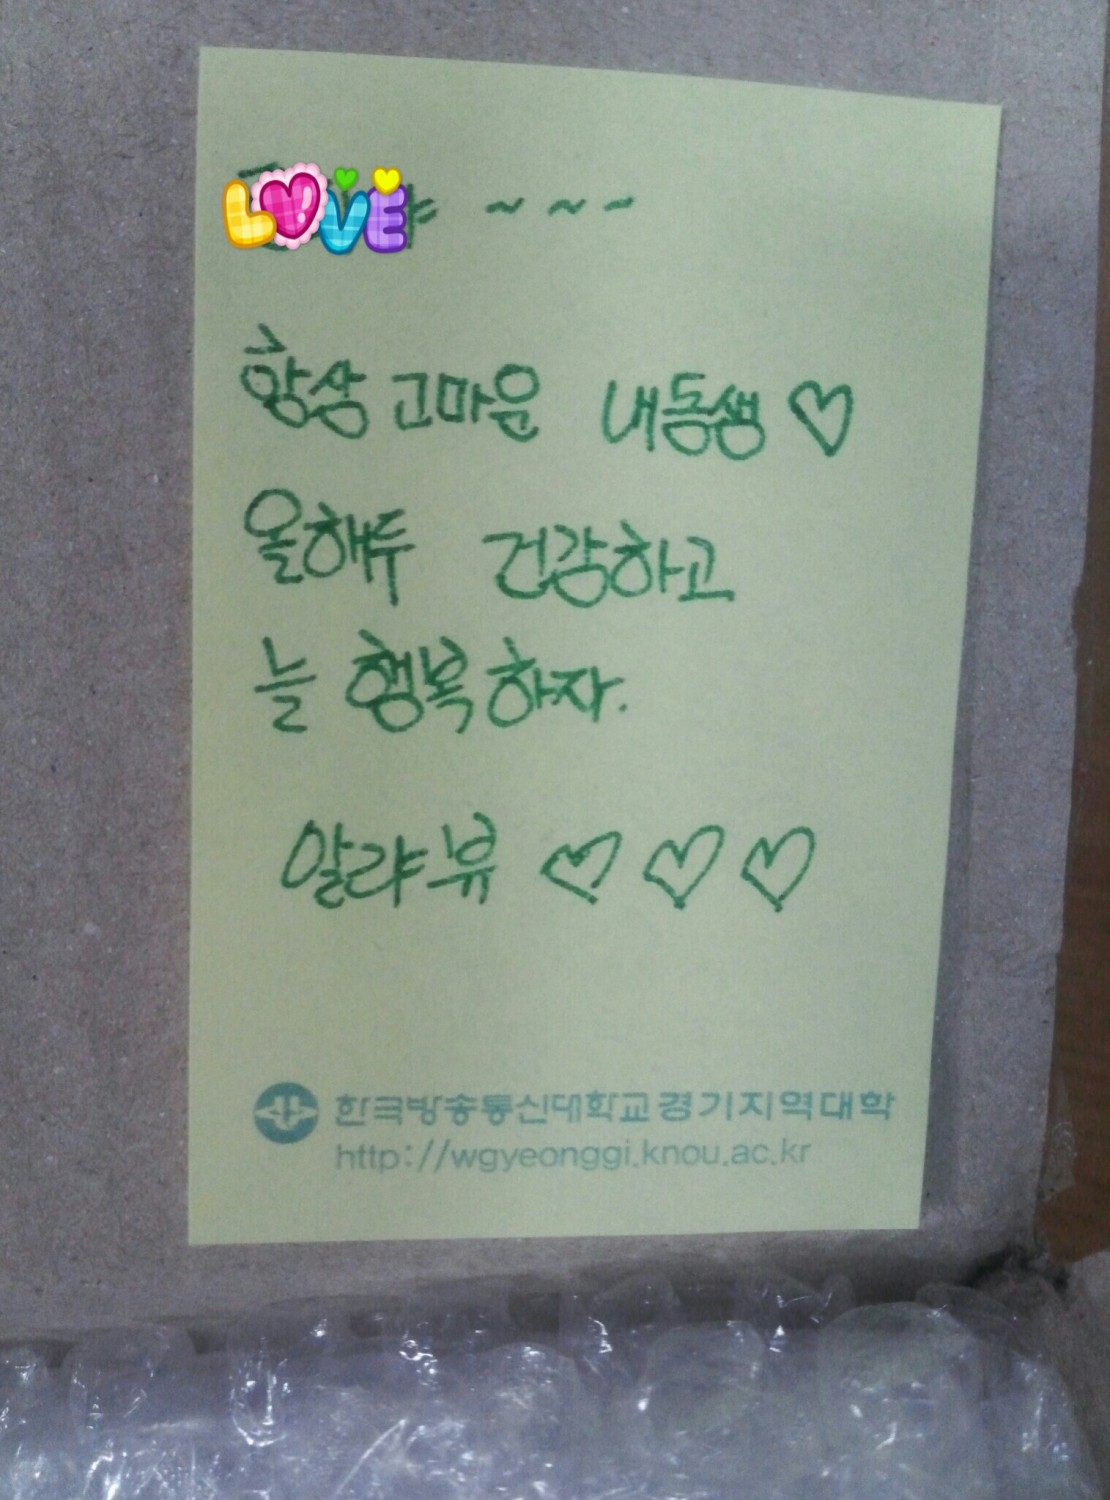 LOVE ~ ~ ~
항상 고마운 내동생 ♡
올해두 건강하고
늘 행복하자.
알랴뷰 ♡ ♡ ♡
한국방송통신대학교경기지역대학
http://wgyeonggi.knou.ac.kr